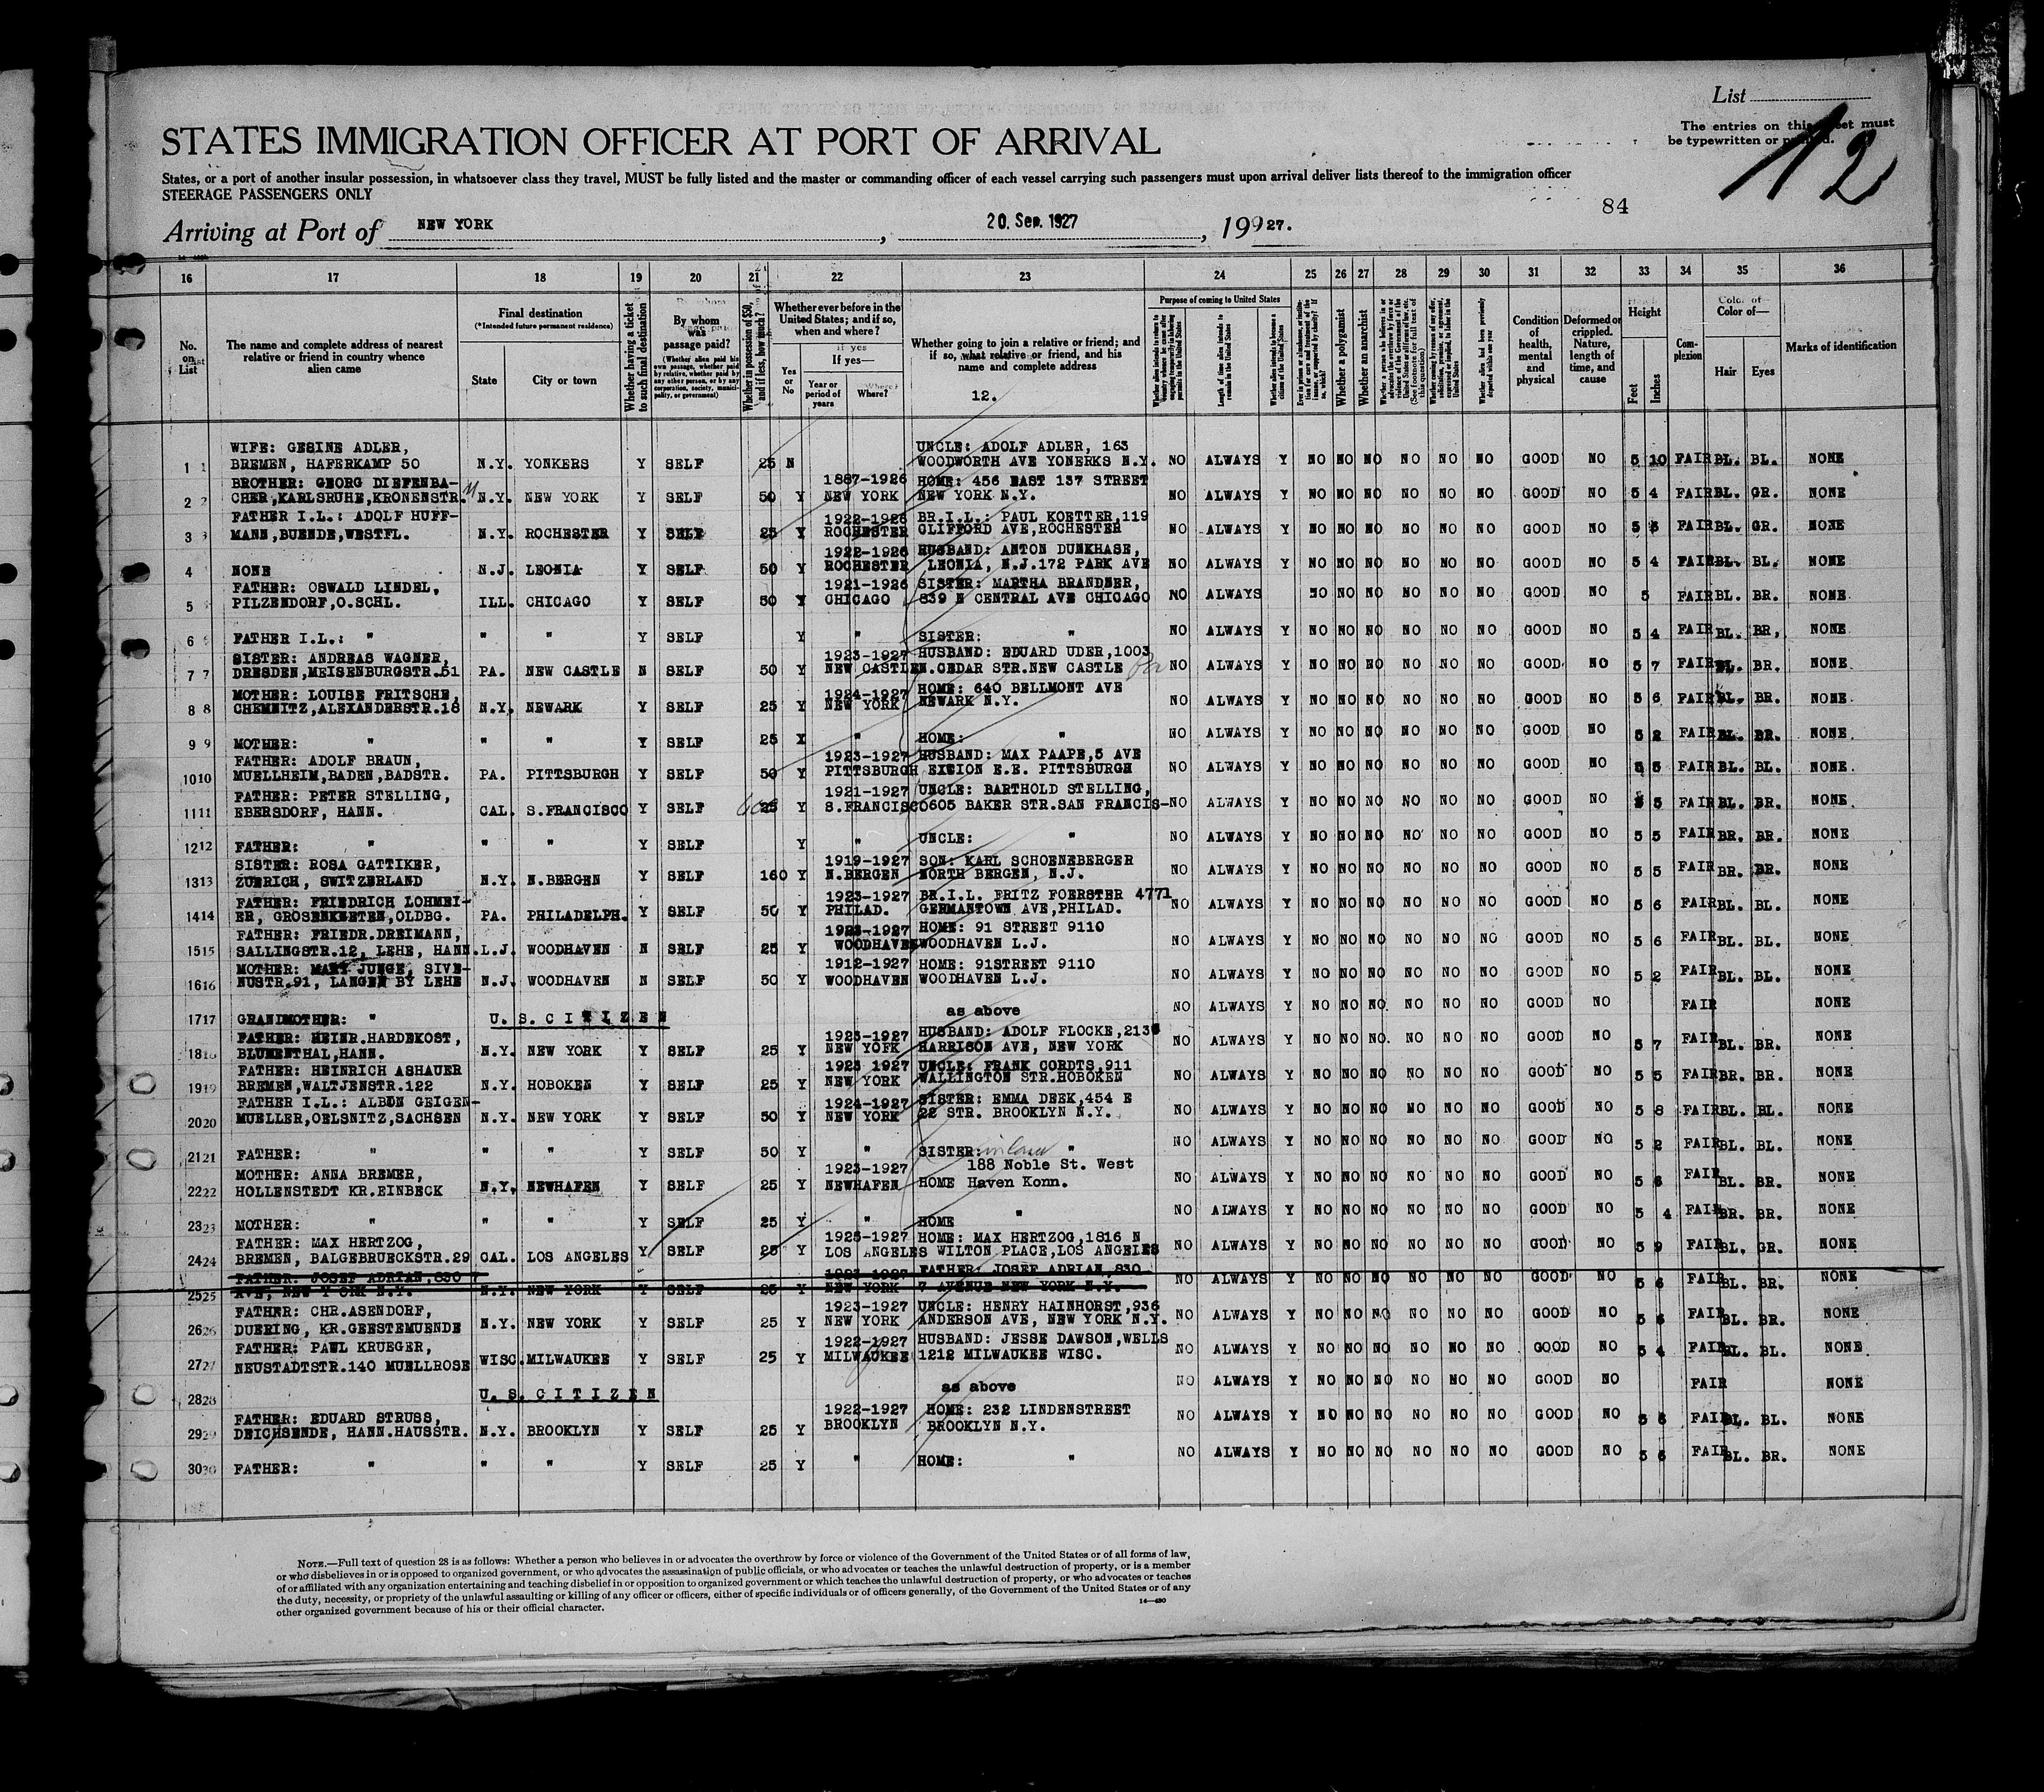 List
The entries on this sheet must
be typewritten or printed.
12
STATES IMMIGRATION OFFICER AT PORT OF ARRIVAL
States, or a port of another insular possession, in whatsoever class they travel, MUST be fully listed and the master or commanding officer of each vessel carrying such passengers must upon arrival deliver lists thereof to the immigration officer
STEERAGE PASSENGERS ONLY
84
Arriving at Port of NEW YORK , 20. Sep. 1927 , 19 27.
16 17 18 19 20 21 22 23 24 25 26 27 28 29 30 31 32 33 34 35 36
No. on List
The name and complete address of nearest relative or friend in country whence alien came
Final destination
(*Intended future permanent residence)
State
City or town
Whether having a ticket to such final destination
By whom was passage paid?
(Whether alien paid his own passage, whether paid by relative, whether paid by any other person, or by any corporation, society, municipality, or government)
Whether in possession of $50, and if less, how much?
Whether ever before in the United States; and if so, when and where?
Yes or No
If yes—
Year or period of years
Where?
Whether going to join a relative or friend; and if so, what relative or friend, and his name and complete address
12.
Purpose of coming to United States
Length of time alien intends to remain in the United States
Whether alien intends to become a citizen of the United States
Whether a polygamist
Whether an anarchist
Condition of health, mental and physical
Deformed or crippled. Nature, length of time, and cause
Height
Feet
Inches
Complexion
Color of—
Hair
Eyes
Marks of identification
WIFE: GESINE ADLER, UNCLE: ADOLF ADLER, 163
1 1 BREMEN, HAFERKAMP 50 N.Y. YONKERS Y SELF 25 N WOODWORTH AVE YONERKS N.Y. NO ALWAYS Y NO NO NO NO NO NO GOOD NO 5 10 FAIR BL. BL. NONE
BROTHER: GEORG DIEFENBA- 1887-1926 HOME: 456 EAST 137 STREET
2 2 CHER,KARLSRUHE,KRONENSTR. N.Y. NEW YORK Y SELF 50 Y NEW YORK NEW YORK N.Y. NO ALWAYS Y NO NO NO NO NO NO GOOD NO 5 4 FAIR BL. GR. NONE
FATHER I.L.: ADOLF HUFF- 1922-1926 BR.I.L.: PAUL KOETTER,119
3 3 MANN,BUENDE,WESTFL. N.Y. ROCHESTER Y SELF 25 Y ROCHESTER CLIFFORD AVE,ROCHESTER NO ALWAYS Y NO NO NO NO NO NO GOOD NO 5 FAIR BL. GR. NONE
1922-1926 HUSBAND: ANTON DUNKHASE,
4 NONE N.J. LEONIA Y SELF 50 Y ROCHESTER LEONIA, N.J.172 PARK AVE NO ALWAYS Y NO NO NO NO NO NO GOOD NO 5 4 FAIR BL. BL. NONE
FATHER: OSWALD LINDEL, 1921-1926 SISTER: MARTHA BRANDNER,
5 PILZENDORF,O.SCHL. ILL. CHICAGO Y SELF 50 Y CHICAGO 839 N CENTRAL AVE CHICAGO NO ALWAYS NO NO NO NO NO NO GOOD NO 5 FAIR BL. BR. NONE
6 FATHER I.L.: " " " Y SELF Y " SISTER: " NO ALWAYS Y NO NO NO NO NO NO GOOD NO 5 4 FAIR BL. BR, NONE
SISTER: ANDREAS WAGNER, 1923-1927 HUSBAND: EDUARD UDER,1003
7 7 DRESDEN,MEISENBURGSTR.51 PA. NEW CASTLE N SELF 50 Y NEW CASTLE N.CEDAR STR.NEW CASTLE NO ALWAYS Y NO NO NO NO NO NO GOOD NO 5 7 FAIR BL. BR. NONE
MOTHER: LOUISE FRITSCHE, 1924-1927 HOME: 640 BELLMONT AVE
8 8 CHEMNITZ,ALEXANDERSTR.18 N.Y. NEWARK Y SELF 25 Y NEW YORK NEWARK N.Y. NO ALWAYS Y NO NO NO NO NO NO GOOD NO 5 6 FAIR BL. BR. NONE
9 9 MOTHER: " " " Y SELF 25 X " HOME: " NO ALWAYS Y NO NO NO NO NO NO GOOD NO 5 2 FAIR BL. BR. NONE
FATHER: ADOLF BRAUN, 1923-1927 HUSBAND: MAX PAAPE,5 AVE
10 10 MUELLHEIM,BADEN,BADSTR. PA. PITTSBURGH Y SELF 50 Y PITTSBURGH EXCION E.E. PITTSBURGH NO ALWAYS Y NO NO NO NO NO NO GOOD NO 5 5 FAIR BL. BL. NONE
FATHER: PETER STELLING, 1921-1927 UNCLE: BARTHOLD STELLING,
11 11 EBERSDORF, HANN. CAL. S.FRANCISCO Y SELF 25 Y S.FRANCISCO 605 BAKER STR.SAN FRANCIS- NO ALWAYS Y NO NO NO NO NO NO GOOD NO 5 5 FAIR BL. BR. NONE
12 12 FATHER: " " " Y SELF Y " UNCLE: " NO ALWAYS Y NO NO NO NO NO NO GOOD NO 5 5 FAIR BR. BR. NONE
SISTER: ROSA GATTIKER, 1919-1927 SON: KARL SCHOENEBERGER
13 13 ZUERICH, SWITZERLAND N.Y. N.BERGEN Y SELF 160 Y N.BERGEN NORTH BERGEN, N.J. NO ALWAYS Y NO NO NO NO NO NO GOOD NO 5 5 FAIR BR. BR. NONE
FATHER: FRIEDRICH LOHMEI- 1923-1927 BR.I.L. FRITZ FOERSTER 4771
14 14 ER, GROSENKNETEN,OLDBG. PA. PHILADELPH. Y SELF 50 Y PHILAD. GERMANTOWN AVE,PHILAD. NO ALWAYS Y NO NO NO NO NO NO GOOD NO 5 6 FAIR BL. BL. NONE
FATHER: FRIEDR.DREIMANN, 1923-1927 HOME: 91 STREET 9110
15 15 SALLINGSTR.12, LEHE, HANN. L.J. WOODHAVEN N SELF 25 Y WOODHAVEN WOODHAVEN L.J. NO ALWAYS Y NO NO NO NO NO NO GOOD NO 5 6 FAIR BL. BL. NONE
MOTHER: MARY JUNGE, SIVE- 1912-1927 HOME: 91STREET 9110
16 16 NUSTR.91, LANGEN BY LEHE N.J. WOODHAVEN N SELF 50 Y WOODHAVEN WOODHAVEN L.J. NO ALWAYS Y NO NO NO NO NO NO GOOD NO 5 2 FAIR BL. BL. NONE
17 17 GRANDMOTHER: " U. S. C I T I Z E N as above NO ALWAYS Y NO NO NO NO NO NO GOOD NO FAIR NONE
FATHER: HEINR.HARDEKOST, 1923-1927 HUSBAND: ADOLF FLOCKE,213
18 18 BLUMENTHAL,HANN. N.Y. NEW YORK Y SELF 25 Y NEW YOFK HARRISON AVE, NEW YORK NO ALWAYS Y NO NO NO NO NO NO GOOD NO 5 7 FAIR BL. BR. NONE
FATHER: HEINRICH ASHAUER 1923 1927 UNCLE: FRANK CORDTS,911
19 19 BREMEN,WALTJENSTR.122 N.Y. HOBOKEN Y SELF 25 Y NEW YORK WALLINGTON STR.HOBOKEN NO ALWAYS Y NO NO NO NO NO NO GOOD NO 5 5 FAIR BR. BR. NONE
FATHER I.L.: ALBUN GEIGEN- 1924-1927 SISTER: EMMA DEEK,454 E
20 20 MUELLER,OELSNITZ,SACHSEN N.Y. NEW YORK Y SELF 50 Y NEW YORK 22 STR. BROOKLYN N.Y. NO ALWAYS Y NO NO NO NO NO NO GOOD NO 5 8 FAIR BL. BL. NONE
21 21 FATHER: " " " Y SELF 50 Y " SISTER: in law " NO ALWAYS Y NO NO NO NO NO NO GOOD NO 5 2 FAIR BL. BL. NONE
MOTHER: ANNA BREMER, 1923-1927 188 Noble St. West
22 22 HOLLENSTEDT KR.EINBECK N.Y. NEWHAFEN Y SELF 25 Y NEWHAFEN HOME Haven Konn. NO ALWAYS Y NO NO NO NO NO NO GOOD NO 5 6 FAIR BL. BR. NONE
23 23 MOTHER: " " " Y SELF 25 Y " HOME " NO ALWAYS Y NO NO NO NO NO NO GOOD NO 5 4 FAIR BR. BR. NONE
FATHER: MAX HERTZOG, 1925-1927 HOME: MAX HERTZOG,1816 N
24 24 BREMEN, BALGEBRUECKSTR.29 CAL. LOS ANGELES Y SELF 25 Y LOS ANGELES WILTON PLACE,LOS ANGELES NO ALWAYS Y NO NO NO NO NO NO GOOD NO 5 9 FAIR BL. GR. NONE
FATHER: JOSEF ADRIAN,830 7 1923-1927 FATHER: JOSEF ADRIAN,830
25 25 AVE, NEW Y ORK N.Y. N.Y. NEW YORK Y SELF 25 Y NEW YORK 7 AVENUE NEW YORK N.Y. NO ALWAYS Y NO NO NO NO NO NO GOOD NO 5 6 FAIR BL. BR. NONE
FATHER: CHR.ASENDORF, 1923-1927 UNCLE: HENRY HAINHORST,936
26 26 DUERING, KR.GEESTEMUENDE N.Y. NEW YORK Y SELF 25 Y NEW YORK ANDERSON AVE, NEW YORK N.Y. NO ALWAYS Y NO NO NO NO NO NO GOOD NO 5 6 FAIR BL. BR. NONE
FATHER: PAUL KRUEGER, 1922-1927 HUSBAND: JESSE DAWSON,WELLS
27 27 NEUSTADTSTR.140 MUELLROSE WISC. MILWAUKEE Y SELF 25 Y MILWAUKEE 1212 MILWAUKEE WISC. NO ALWAYS Y NO NO NO NO NO NO GOOD NO 5 4 FAIR BL. BL. NONE
28 28 U. S. C I T I Z E N as above NO ALWAYS Y NO NO NO NO NO NO GOOD NO FAIR NONE
FATHER: EDUARD STRUSS, 1922-1927 HOME: 232 LINDENSTREET
29 29 DEICHSENDE, HANN.HAUSSTR. N.Y. BROOKLYN Y SELF 25 Y BROOKLYN BROOKLYN N.Y. NO ALWAYS Y NO NO NO NO NO NO GOOD NO 5 6 FAIR BL. BL. NONE
30 30 FATHER: " " " Y SELF 25 Y " HOME: " NO ALWAYS Y NO NO NO NO NO NO GOOD NO 5 6 FAIR BL. BR. NONE
NOTE.—Full text of question 28 is as follows: Whether a person who believes in or advocates the overthrow by force or violence of the Government of the United States or of all forms of law,
or who disbelieves in or is opposed to organized government, or who advocates the assassination of public officials, or who advocates or teaches the unlawful destruction of property, or is a member
of or affiliated with any organization entertaining and teaching disbelief in or opposition to organized government or which teaches the unlawful destruction of property, or who advocates or teaches
the duty, necessity, or propriety of the unlawful assaulting or killing of any officer or officers, either of specific individuals or of officers generally, of the Government of the United States or of any
other organized government because of his or their official character.
14—430